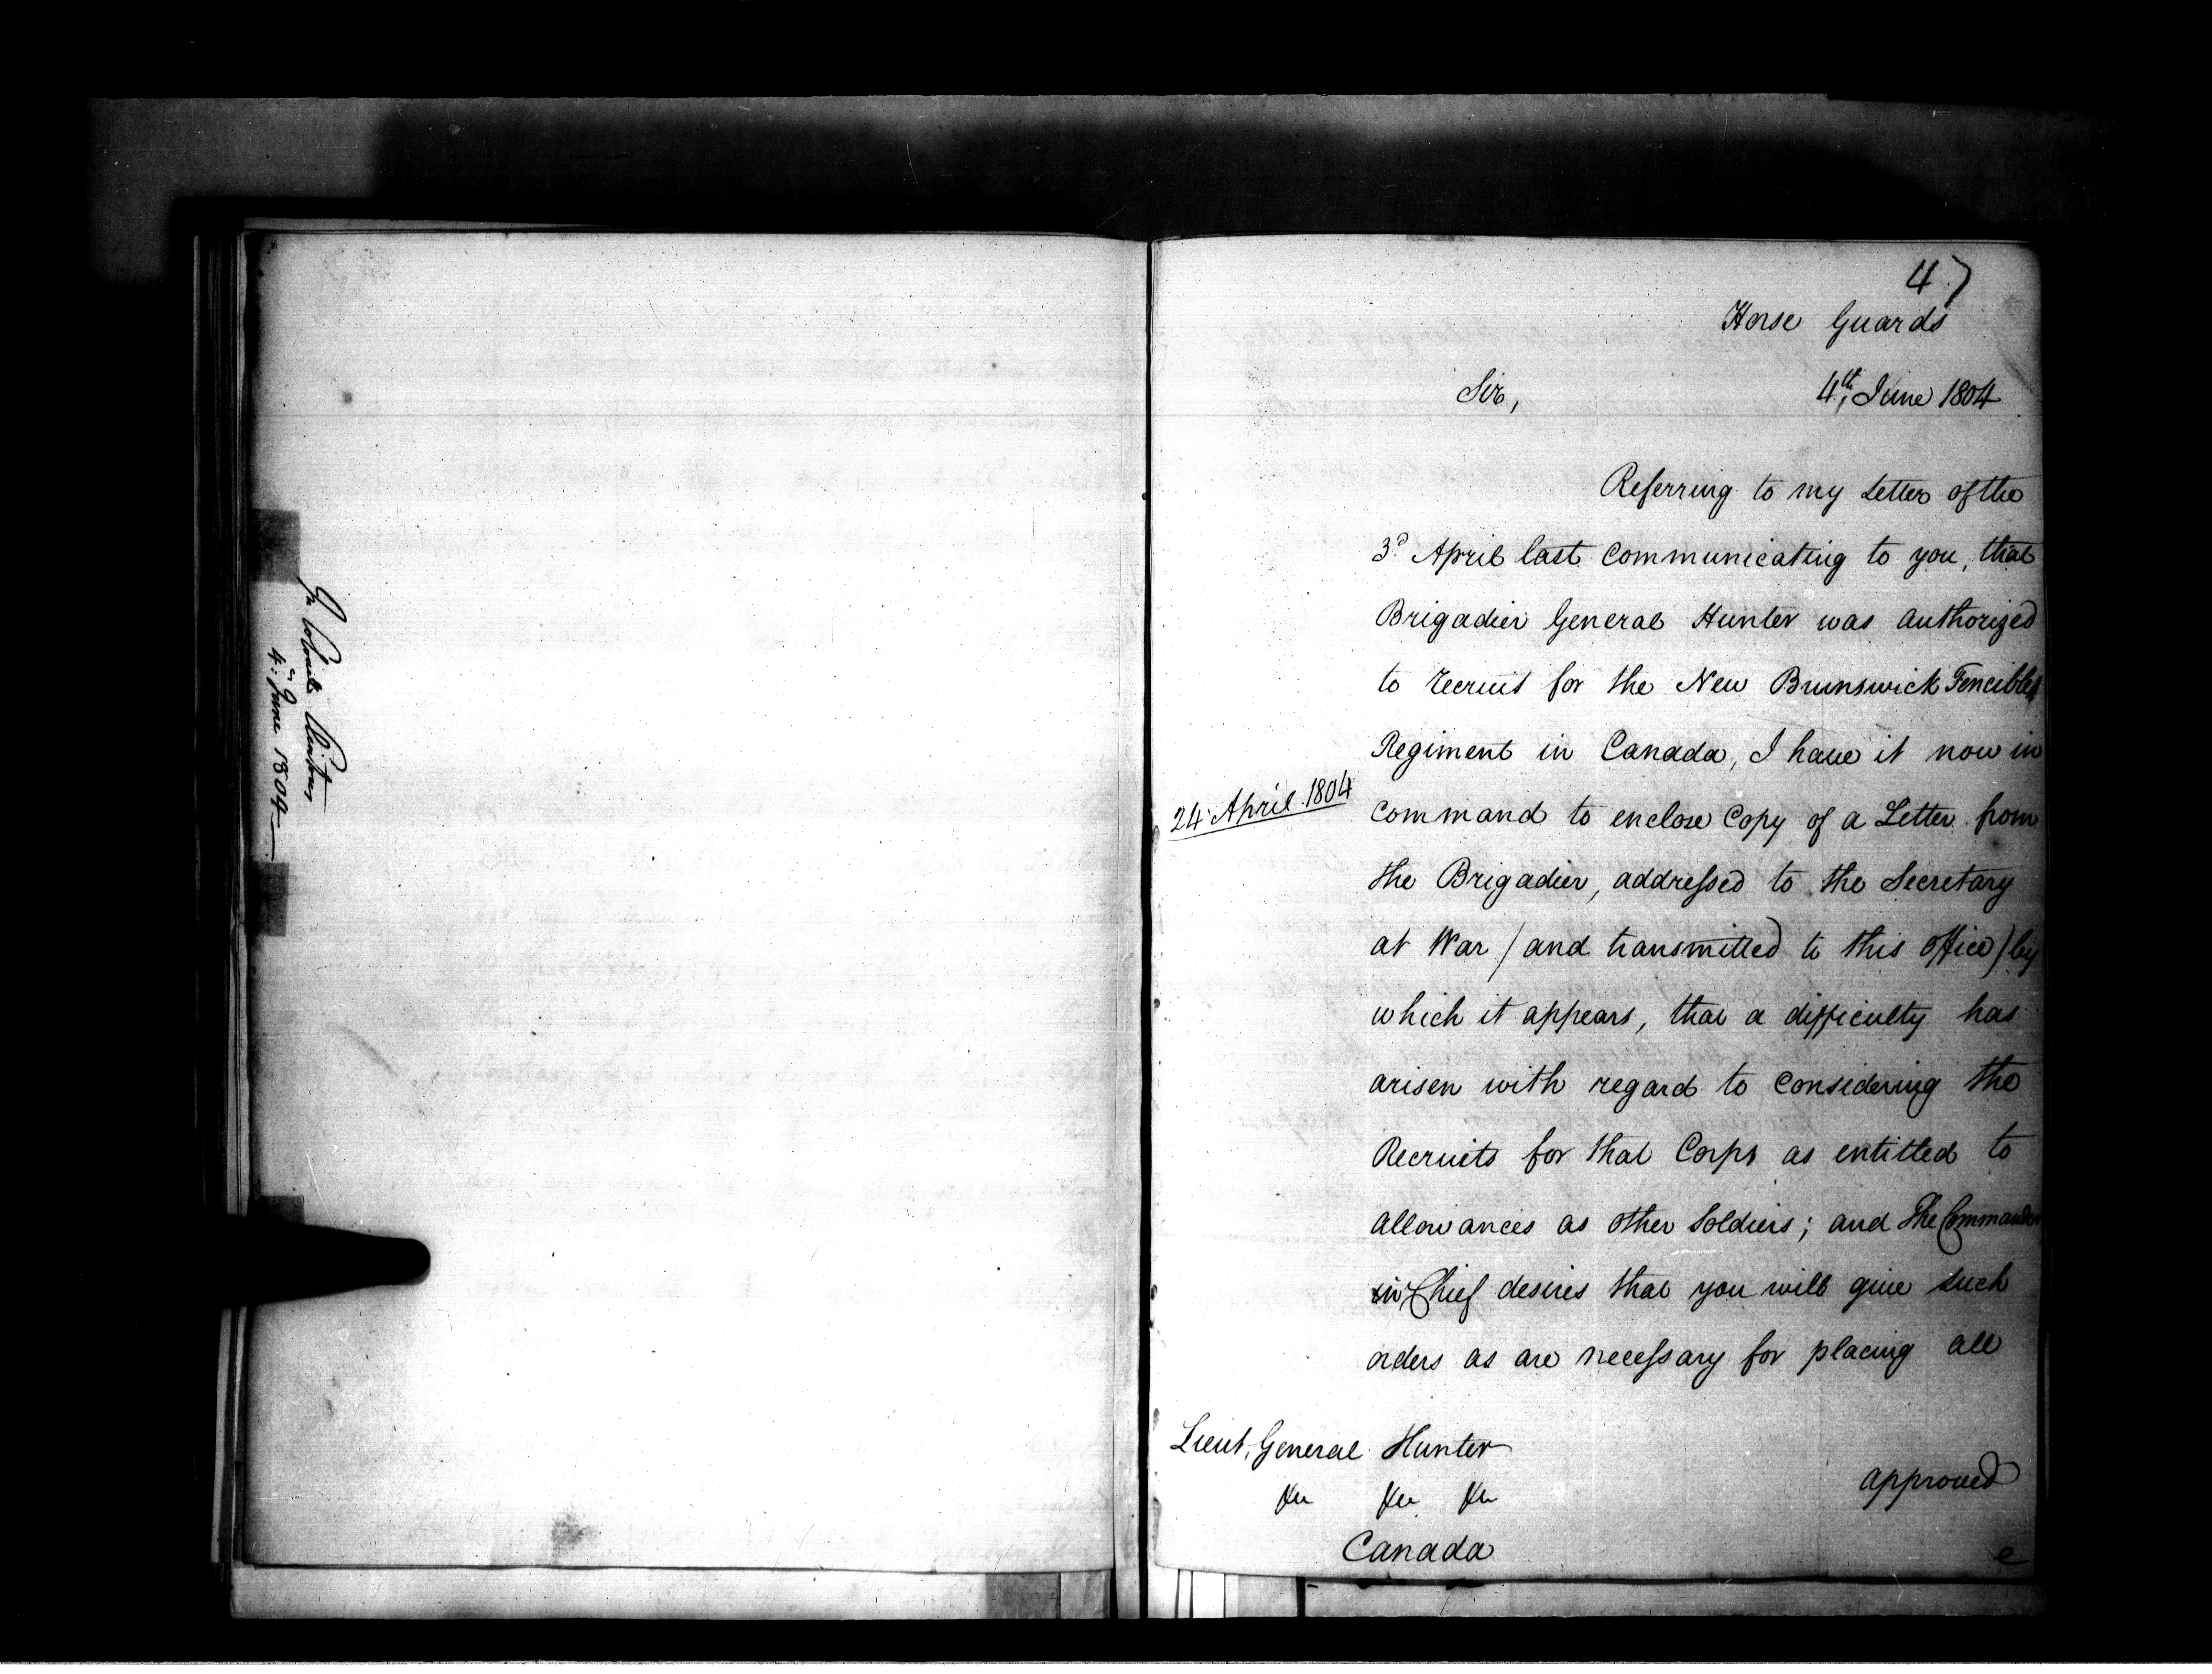 4ᵗʰ June 1804
47
Horse Guards
Sir, 4ᵗʰ June 1804
Referring to my Letter of the
3ᵈ April last communicating to you, that
Brigadier General Hunter was authorized
to recruit for the New Brunswick Fencible
Regiment in Canada, I have it now in
24 April 1804
command to enclose Copy of a Letter from
the Brigadier, addressed to the Secretary
at War / and transmitted to this office) by
which it appears, that a difficulty has
arisen with regard to considering the
Recruits for that Corps as entitled to
allowances as other Soldiers; and The Commander
in Chief desires that you will give such
orders as are necessary for placing all
Lieut. General Hunter
&c &c &c
approved
Canada